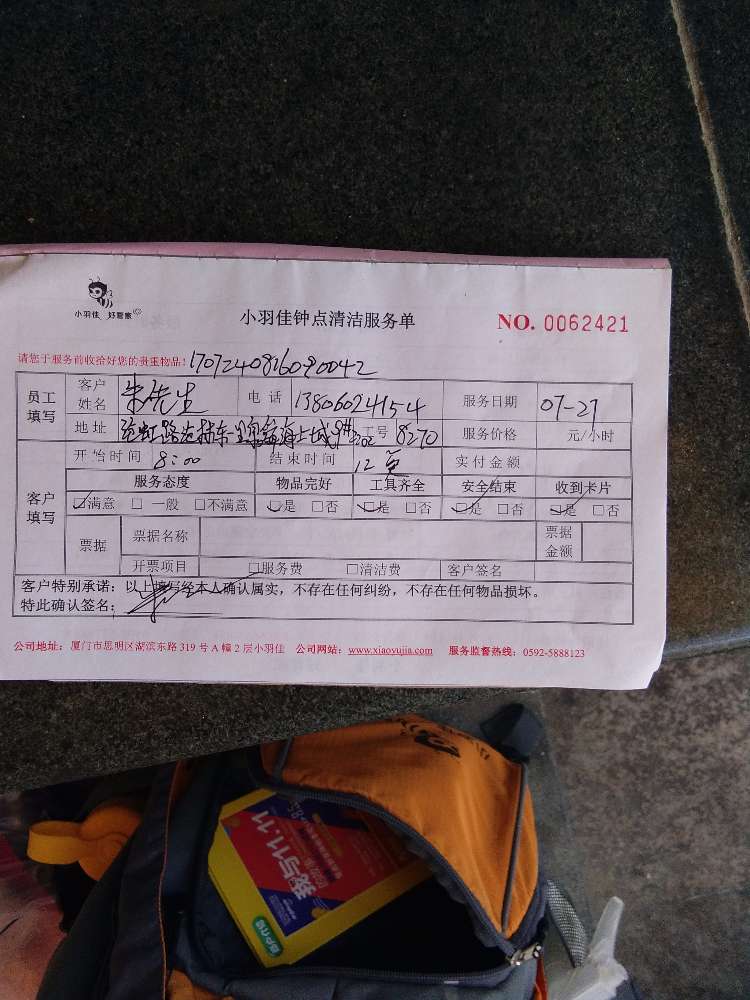 小羽佳 好管家
小羽佳钟点清洁服务单
NO. 0062421
请您于服务前收给好您的贵重物品! 1707240816090042
员工填写 客户姓名 朱先生 电话 13806024154 服务日期 07-27
地址 工号 8270 服务价格 元/小时
开始时间 8:00 结束时间 12 实付金额
客户填写 服务态度 物品完好 工具齐全 安全结束 收到卡片
☑满意 □一般 □不满意 ☑是 □否 ☑是 □否 ☑是 □否 ☑是 □否
票据 票据名称 票据金额
开票项目 □服务费 □清洁费 客户签名
客户特别承诺:以上填写经本人确认属实,不存在任何纠纷,不存在任何物品损坏。
特此确认签名:
公司地址:厦门市思明区湖滨东路 319 号 A 幢 2 层小羽佳 公司网站:www.xiaoyujia.com 服务监督热线:0592-5888123
我与11.11